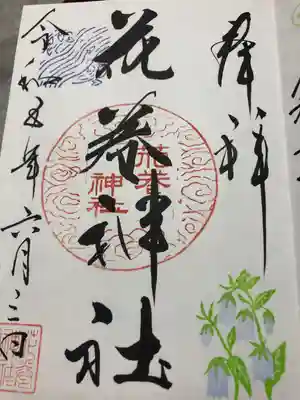 奉拝
花巻神社
花巻
神社
令和五年六月二日